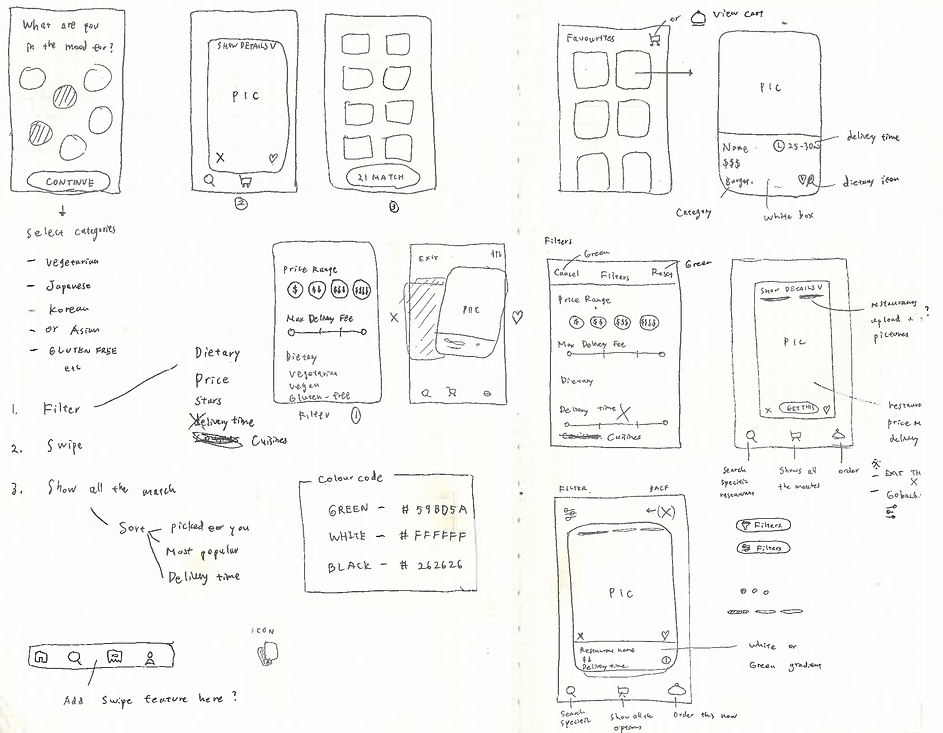 What are you
in the mood for?
CONTINUE
Select categories
- vegetarian
- Japanese
- korean
- or Asian
- GLUTEN FREE
etc
1. Filter
2. Swipe
3. Show all the match
Dietary
Price
Stars
delivery time
Cuisines
Sort
picked for you
Most popular
Delivery time
Add swipe feature here ?
ICON
SHOW DETAILS V
PIC
X
2
21 MATCH
3
Price Range
$ $$ $$$ $$$$
Max Delivey Fee
Dietary
vegetarian
vegan
Gluten-free
Filter 1
X
Exit
PIC
Colour code
GREEN - # 59BD5A
WHITE - # FFFFFF
BLACK - # 262626
Favourites
or
view cart
PIC
Name
25-30
$$$
Burger.
delivey time
dietary icon
Category
white box
Filters
Green
Green
Cancel Filters Reset
Price Range
$ $$ $$$ $$$$
Max Delivey Fee
Dietary
Delivey time X
Cuisines
SHOW DETAILS V
PIC
X GET THIS
restaurants
upload
pictures
?
price
delivey
Search
specific
restaurant
Shows all
the matches
order
EXIT TH
X
- Go back
FILTER
BACK
←(X)
PIC
X
Restaurant name
$$
Delivery time
white or
Green gradient
Search
specific
Show all the
options
Order this now
Filters
Filters